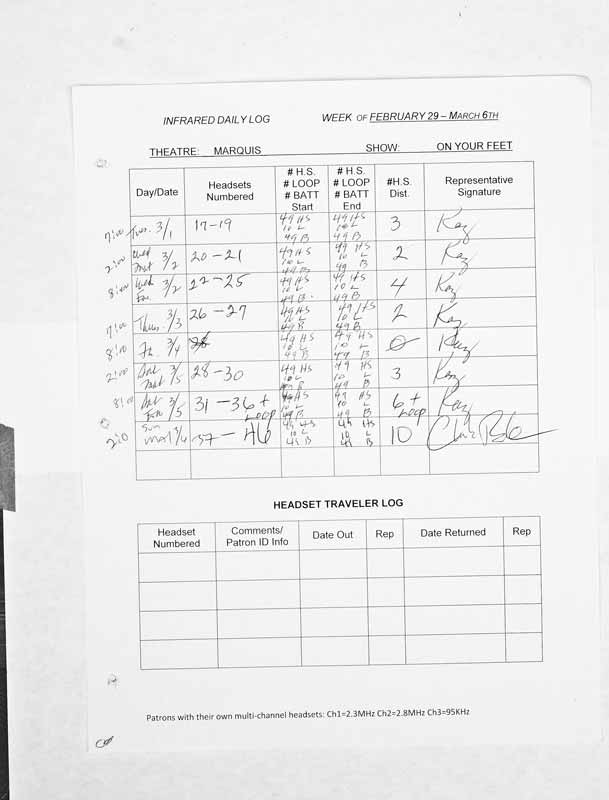 INFRARED DAILY LOG WEEK OF FEBRUARY 29 – MARCH 6TH
THEATRE: MARQUIS SHOW: ON YOUR FEET
Day/Date Headsets Numbered # H.S. # LOOP # BATT Start # H.S. # LOOP # BATT End #H.S. Dist. Representative Signature
7:00 Tues. 3/1 17-19 49 HS 10 L 49 B 49 HS 10 L 49 B 3 Kaz
2:00 Wed Mat 3/2 20-21 49 HS 10 L 49 B 49 HS 10 L 49 B 2 Kaz
8:00 Wed Eve 3/2 22-25 49 HS 10 L 49 B. 49 HS 10 L 49 B 4 Kaz
7:00 Thurs. 3/3 26-27 49 HS 10 L 49 B 49 HS 10 L 49 B 2 Kaz
8:00 Fri. 3/4 49 HS 10 L 49 B 49 HS 10 L 49 B 0 Kaz
2:00 Sat Mat 3/5 28-30 49 HS 10 L 49 B 49 HS 10 L 49 B 3 Kaz
8:00 Sat Eve 3/5 31-36 + Loop 49 HS 10 L 49 B 49 HS 10 L 49 B 6 + Loop Kaz
Sun Mat 3/6 37-46 49 HS 10 L 49 B 49 HS 10 L 49 B 10
HEADSET TRAVELER LOG
Headset Numbered Comments/ Patron ID Info Date Out Rep Date Returned Rep
Patrons with their own multi-channel headsets: Ch1=2.3MHz Ch2=2.8MHz Ch3=95KHz